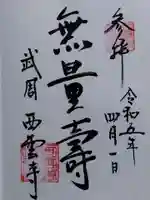 参拝
令和五年
四月一日
無量壽
武周
西雲寺